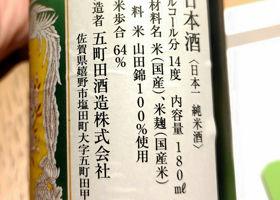 日本酒〈日本一 純米酒〉
ルコール分 14度 内容量 180ml
材料名 米(国産)、米麹(国産米)
料米 山田錦100%使用
米歩合 64%
造者 五町田酒造株式会社
佐賀県嬉野市塩田町大字五町田甲